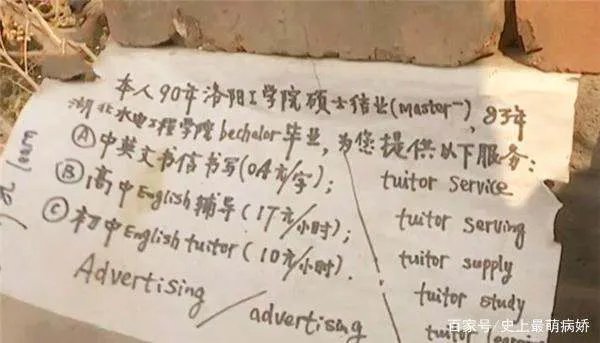 本人90年洛阳工学院硕士结业(master),83年
湖北水电工程学院bechalor毕业,为您提供以下服务:
Ⓐ中英文书信书写(0.4元/字);
Ⓑ高中English辅导(17元/小时);
Ⓒ初中English tuitor(10元/小时).
Advertising / advertising
tuitor service
tuitor serving
tuitor supply
tuitor study
tuitor
learn
百家号/史上最萌病娇